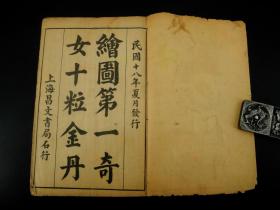 民國十八年夏月發行
繪圖第一奇
女十粒金丹
上海昌文書局石行